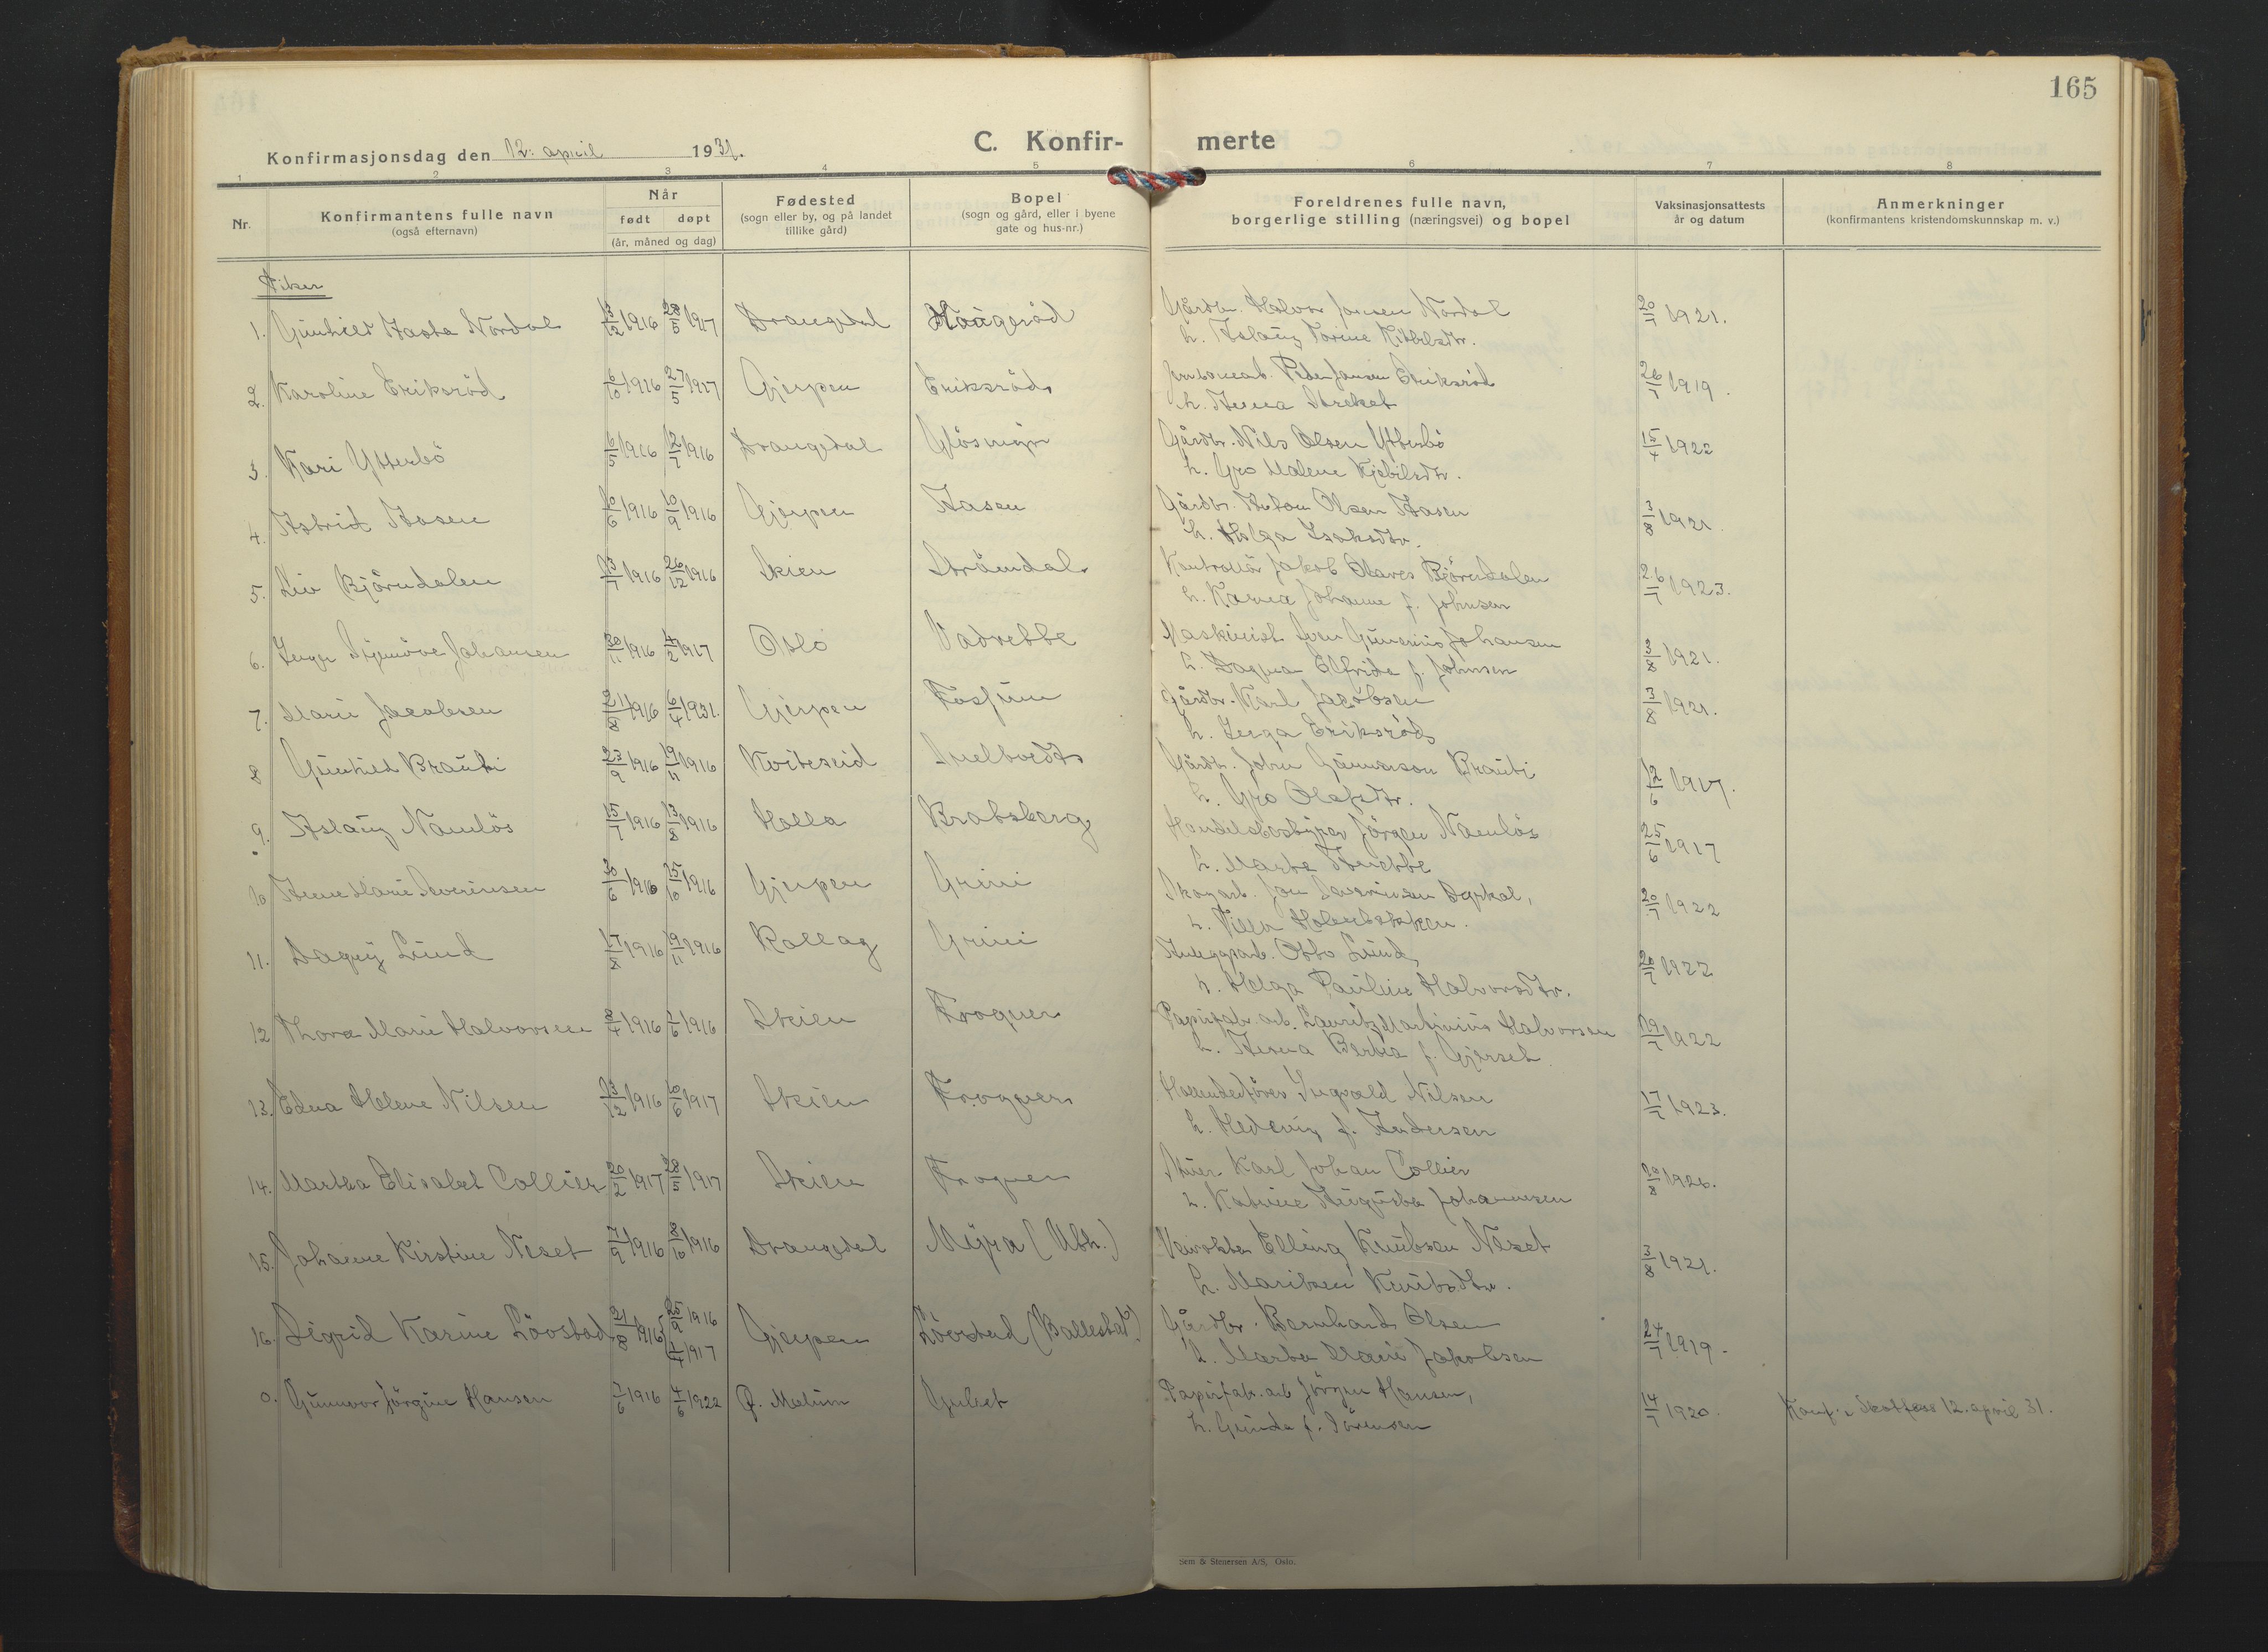 165
C. Konfirmerte
Konfirmasjonsdag den 12. april 1931.
1 2 3 4 5 6 7 8
Nr.
Konfirmantens fulle navn
(også efternavn)
Når
født døpt
(år, måned og dag)
Fødested
(sogn eller by, og på landet
tillike gård)
Bopel
(sogn og gård, eller i byene
gate og hus-nr.)
Foreldrenes fulle navn,
borgerlige stilling (næringsvei) og bopel
Vaksinasjonsattests
år og datum
Anmerkninger
(konfirmantens kristendomskunnskap m. v.)
Piker
1. Gunhild Aasta Nordal 13/12 1916 28/5 1917 Drangedal Haugeröd Gårdbr. Halvor Jonsen Nordal 20/7 1921.
h. Aslaug Torine Kittilsdtr.
2. Karoline Eriksröd 6/10 1916 27/5 1917 Gjerpen Eriksröd Peder Jansen Eriksröd 26/7 1919.
h. Anna
3. Kari Ytterbö 6/5 1916 12/7 1916 Drangedal Glösmyr Gårdbr. Nils Olsen Ytterbö 15/4 1922
h. Gro Malene Kjebilsdtr.
4. Astrid Aasen 10/6 1916 10/9 1916 Gjerpen Aasen Gårdbr. Anton Olsen Aasen 3/8 1921.
h. Helga Isaksdtr.
5. Liv Björndalen 13/7 1916 26/12 1916 Skien Strömdal Kontrollör Jakob Olaves Björndalen 26/7 1923.
h. Karna Johanne f. Johnsen
6. Johansen 30/11 1916 4/2 1917 Oslo Vadrette Maskinist Sven Gunerius Johansen 3/8 1921.
h. Dagmar Elfrida f. Johnsen
7. Marie Jacobsen 21/8 1916 6/4 1931. Gjerpen Fossum Gårdbr. Karl Jacobsen 3/8 1921.
h. Inga Eriksröd
8 Gunhild Brauti 23/9 1916 19/11 1916 Kviteseid Gårdbr. John Gunnarson Brauti 12/6 1917.
h. Gro Olafsdtr.
9. Aslaug Namlös 15/7 1916 13/8 1916 Holla Bratsberg Handelsbestyrer Jörgen Namlös 25/6 1917
h. Marta
10 Anne Marie Severinsen 30/6 1916 15/10 1916 Gjerpen Grini Skogarb. Jon Severinsen 20/7 1922
h.
11. Dagny Lund 17/8 1916 19/11 1916 Rollag Grini Anleggsarb. Otto Lund, 20/7 1922
h. Helga Pauline Halvorsdtr.
12 Thora Marie Halvorsen 8/4 1916 1/6 1916 Skien Frogner Papirfabr. arb. Lauritz Martinius Halvorsen 19/7 1922
h. Anna Berta f. Gjerset
13. Edna Helene Nilsen 13/12 1916 10/6 1917 Skien Frogner Ingvald Nilsen 17/7 1923.
h. Hedevig f. Andersen
14. Martha Elisabet Collier 20/2 1917 28/5 1917 Skien Frogner Karl Johan Collier 1926.
h. Katrine Augusta Johannesen
15. Johanne Kirstine Neset 7/9 1916 8/10 1916 Drangedal Myra (Utk.) Veivokter Elling Knutsen Neset 3/8 1921.
h. Knutsdtr.
16. Sigrid Karine Lövstad 21/8 1916 25/9 1916 Gjerpen Lövstad (Ballestad) Gårdbr. Bernhard Olsen 24/7 1919.
1/4 1917 h. Marta Marie Jakobsen
0. Gunnvor Jörgine Hansen 7/6 1916 4/6 1922 Ø. Melum Gulset Papirfabr. arb. Jörgen Hansen, 14/7 1920. Konf. i Skotfoss 12. april 31.
h. Gunda f. Sörensen
Sem & Stenersen A/S, Oslo.